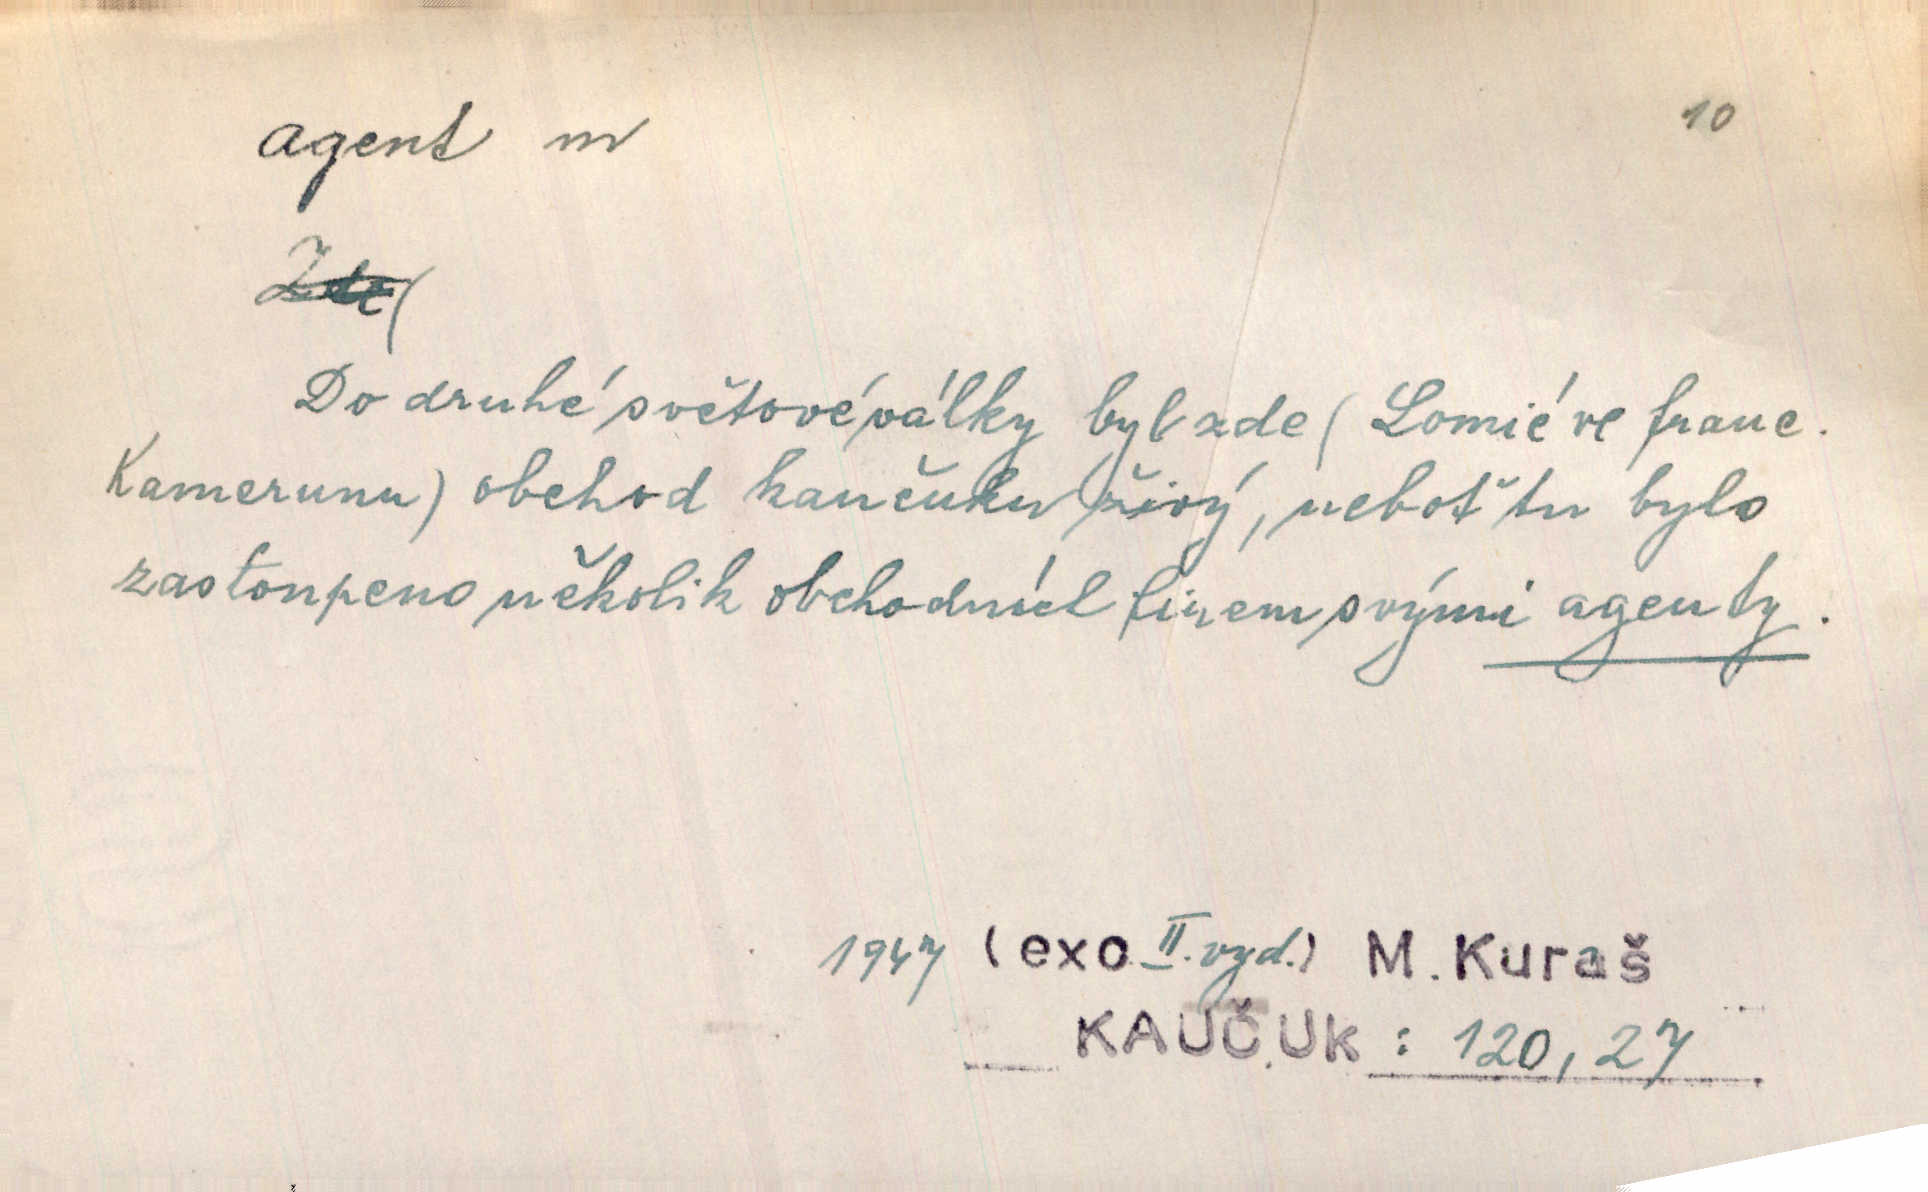 agent m
10
Zde (
Do druhé světové války byl zde ( Lomié ve franc.
Kamerunu) obchod kaučuku živý, neboť tu bylo
zastoupeno několik obchodních firem svými agenty.
1947 (exo II. vyd.) M. Kuraš
KAUČUK : 120, 27